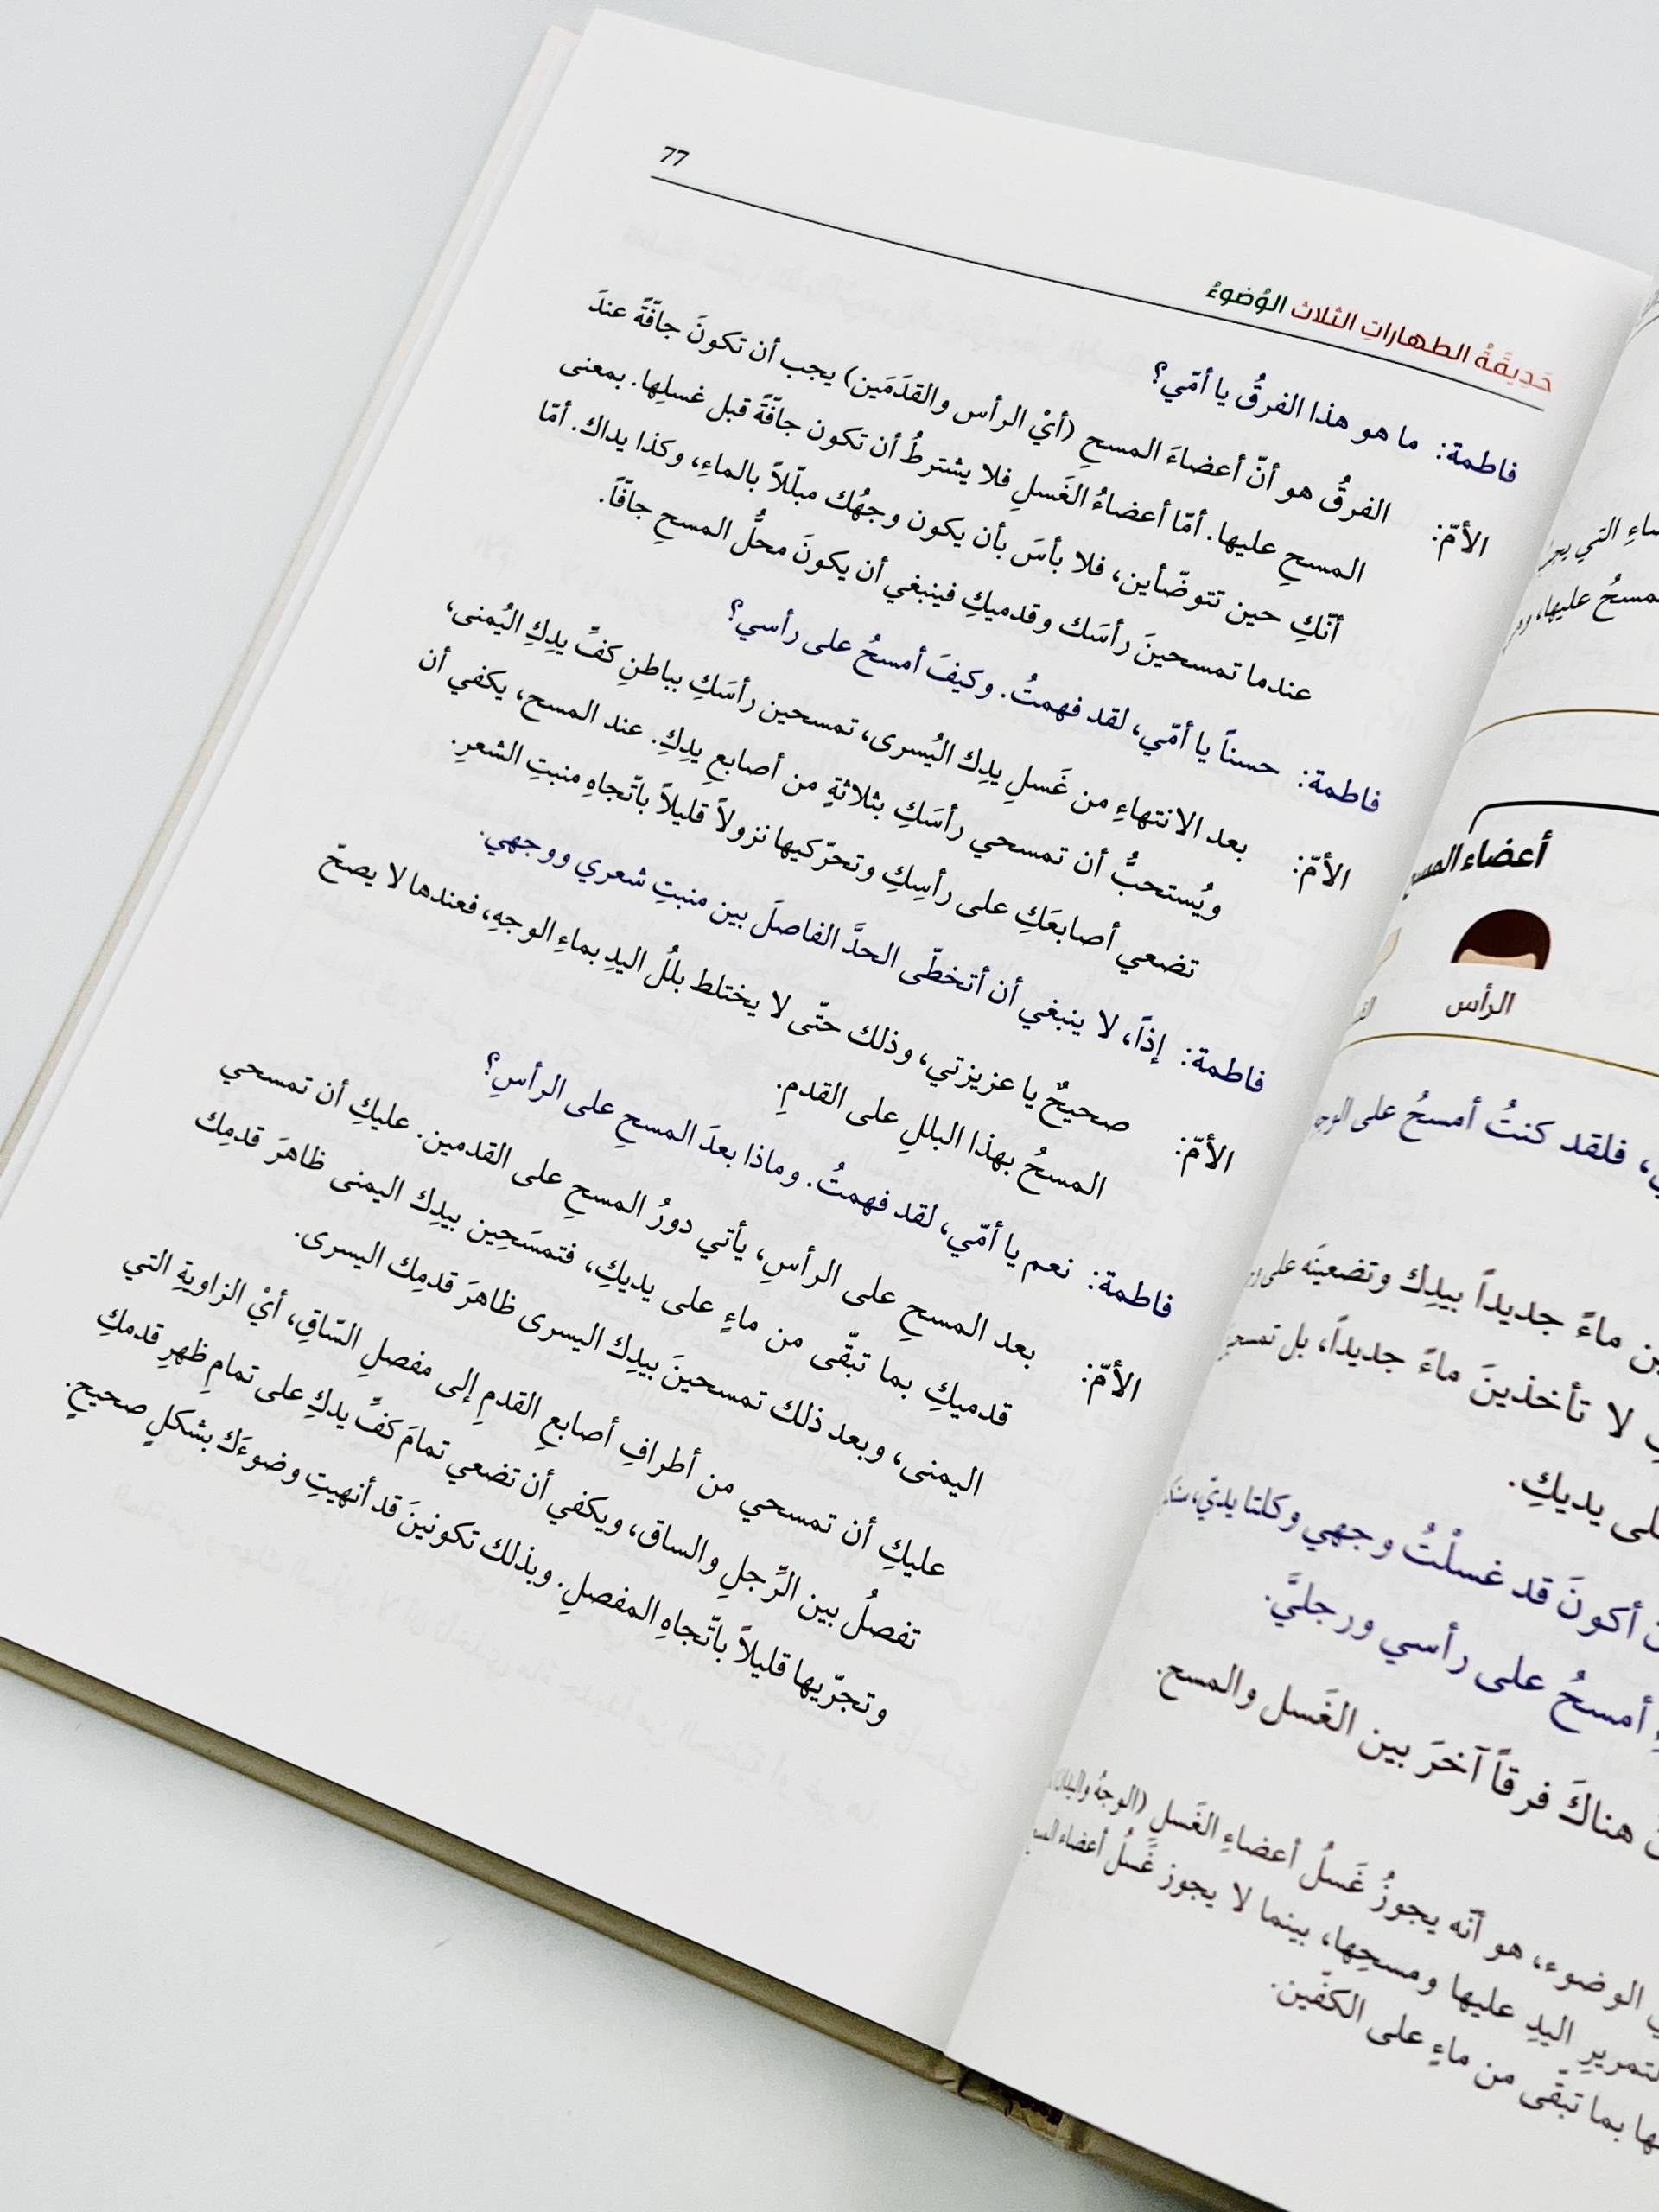 77
حَدِيقَةُ الطهاراتِ الثلاث الوُضوءُ
فاطمة: ما هو هذا الفرقُ يا أمّي؟
الأمّ: الفرقُ هو أنّ أعضاءَ المسحِ (أيْ الرأس والقدَمَين) يجب أن تكونَ جافّةً عندَ
المسحِ عليها. أمّا أعضاءُ الغَسلِ فلا يشترطُ أن تكون جافّةً قبل غسلِها. بمعنى
أنّكِ حين تتوضّأين، فلا بأسَ بأن يكون وجهُك مبلّلاً بالماءِ، وكذا يداك. أمّا
عندما تمسحينَ رأسَك وقدميكِ فينبغي أن يكونَ محلُّ المسحِ جافّاً.
فاطمة: حسناً يا أمّي، لقد فهمتُ. وكيفَ أمسحُ على رأسي؟
الأمّ: بعد الانتهاءِ من غَسلِ يدِكِ اليُسرى، تمسحين رأسَكِ بباطنِ كفِّ يدِكِ اليُمنى،
ويُستحبُّ أن تمسحي رأسَكِ بثلاثةٍ من أصابعِ يدِكِ. عند المسح، يكفي أن
تضعي أصابعَكِ على رأسِكِ وتحرّكيها نزولاً قليلاً باتّجاهِ منبتِ الشعرِ.
فاطمة: إذاً، لا ينبغي أن أتخطّى الحدَّ الفاصلَ بين منبتِ شعري ووجهي.
الأمّ: صحيحٌ يا عزيزتي، وذلك حتّى لا يختلط بللُ اليدِ بماءِ الوجهِ، فعندها لا يصحّ
المسحُ بهذا البللِ على القدمِ.
فاطمة: نعم يا أمّي، لقد فهمتُ. وماذا بعدَ المسحِ على الرأسِ؟
الأمّ: بعد المسحِ على الرأسِ، يأتي دورُ المسحِ على القدمين. عليكِ أن تمسحي
قدميكِ بما تبقّى من ماءٍ على يديكِ، فتمسَحِين بيدِك اليمنى ظاهرَ قدمِك
اليمنى، وبعد ذلك تمسحينَ بيدِك اليسرى ظاهرَ قدمِك اليسرى.
عليكِ أن تمسحي من أطرافِ أصابعِ القدمِ إلى مفصلِ السّاقِ، أيْ الزاويةِ التي
تفصلُ بين الرِّجلِ والساق، ويكفي أن تضعي تمامَ كفِّ يدكِ على تمامِ ظهرِ قدمكِ
وتجرّيها قليلاً باتّجاهِ المفصلِ. وبذلك تكونينَ قد أنهيتِ وضوءَك بشكلٍ صحيحٍ.
التي
مسحُ عليها،
أعضاء
الرأس
، فلقد كنتُ أمسحُ على
ماءً جديداً بيدِك وتضعينَه على
لا تأخذينَ ماءً جديداً، بل
يديكِ.
أكونَ قد غسلْتُ وجهي وكلتا يديّ،
أمسحُ على رأسي ورجليَّ.
هناكَ فرقاً آخرَ بين الغَسل والمسح.
الوضوء، هو أنّه يجوزُ غَسلُ أعضاءِ الغَسلِ (الوجهُ
اليدِ عليها ومسحِها، بينما لا يجوز غَسلُ أعضاء
بما تبقّى من ماءٍ على الكفّين.